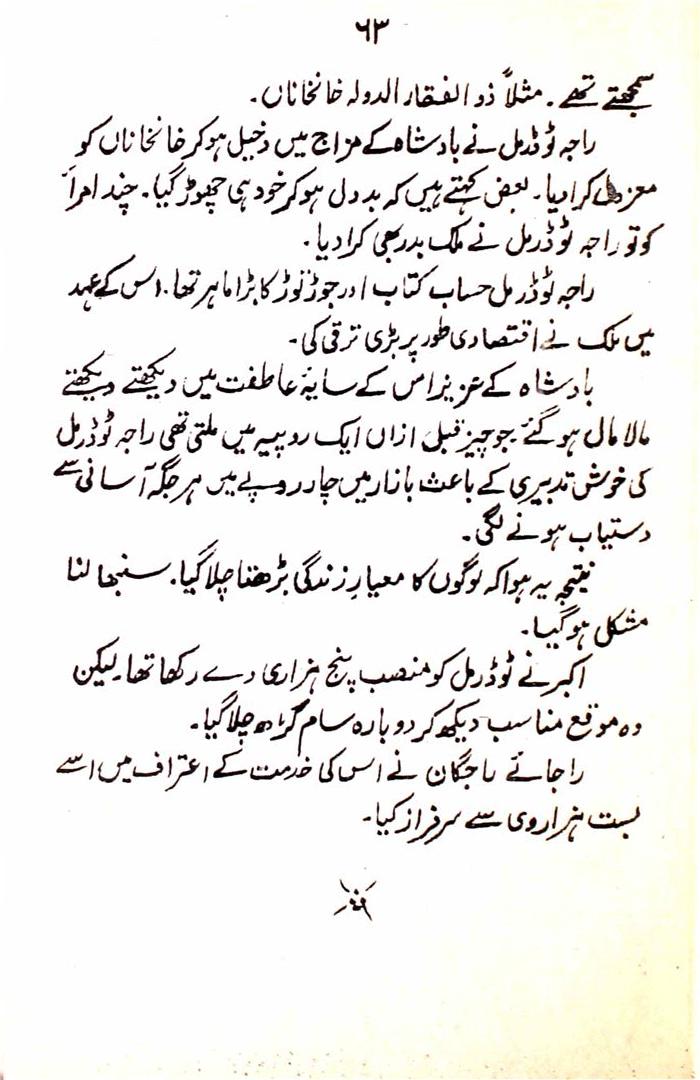 ۶۳
سمجھتے تھے ۔ مثلاً ذو الفقار الدولہ خانخاناں ۔
راجہ ٹوڈرمل نے بادشاہ کے مزاج میں دخیل ہوکر خانخاناں کو
معزول کرادیا۔ بعض کہتے ہیں کہ بددل ہوکر خود ہی چھوڑ گیا۔ چند امرأ
کو تو راجہ ٹوڈرمل نے ملک بدر بھی کرادیا۔
راجہ ٹوڈرمل حساب کتاب اور جوڑ توڑ کا بڑا ماہر تھا۔ اس کے عہد
میں ملک نے اقتصادی طور پر بڑی ترقی کی۔
بادشاہ کے عزیز اس کے سایۂ عاطفت میں دیکھتے دیکھتے
مالا مال ہوگئے جو چیز قبل ازاں ایک روپیہ میں ملتی تھی راجہ ٹوڈرمل
کی خوش تدبیری کے باعث بازار میں چار روپے میں ہر جگہ آسانی سے
دستیاب ہونے لگی۔
نتیجہ یہ ہوا کہ لوگوں کا معیارِ زندگی بڑھتا چلا گیا۔ سنبھالنا
مشکل ہوگیا۔
اکبر نے ٹوڈرمل کو منصب پنج ہزاری دے رکھا تھا۔ لیکن
وہ موقع مناسب دیکھ کر دوبارہ سام گڑھ چلا گیا۔
راجائے راجگان نے اس کی خدمت کے اعتراف میں اسے
بست ہزاروی سے سرفراز کیا۔